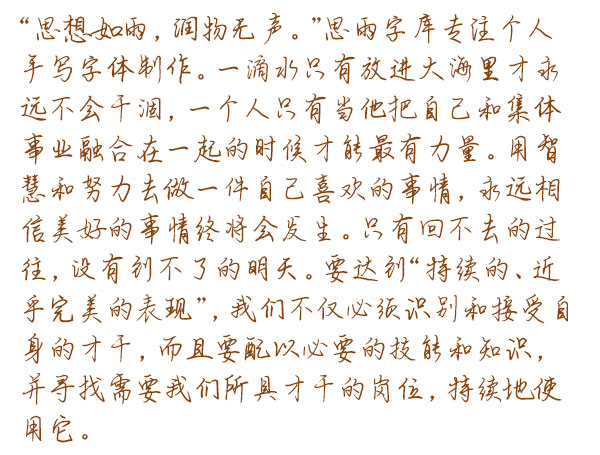 “思想如雨，润物无声。”思雨字库专注个人
手写字体制作。一滴水只有放进大海里才永
远不会干涸，一个人只有当他把自己和集体
事业融合在一起的时候才能最有力量。用智
慧和努力去做一件自己喜欢的事情，永远相
信美好的事情终将会发生。只有回不去的过
往，没有到不了的明天。要达到“持续的、近
乎完美的表现”，我们不仅必须识别和接受自
身的才干，而且要配以必要的技能和知识，
并寻找需要我们所具才干的岗位，持续地使
用它。